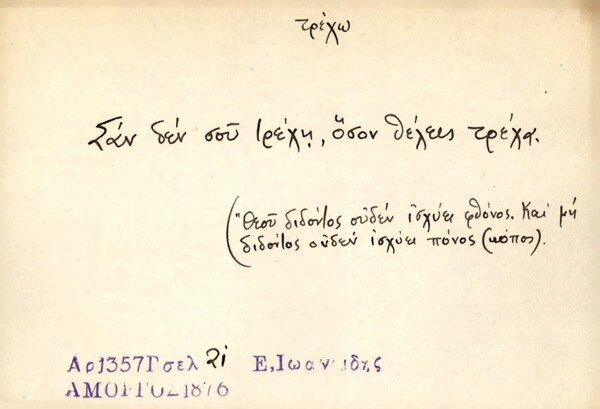 τρέχω
Σάν δέν σοῦ τρέχῃ, ὅσον θέλεις τρέχα.
("Θεοῦ διδόντος οὐδέν ἰσχύει φθόνος. Καί μή
διδόντος οὐδέν ἰσχύει πόνος (κόπος).
Αρ1357Γσελ 21 Ε,Ιωαννιδης
ΑΜΟΡΓΟΣ1876